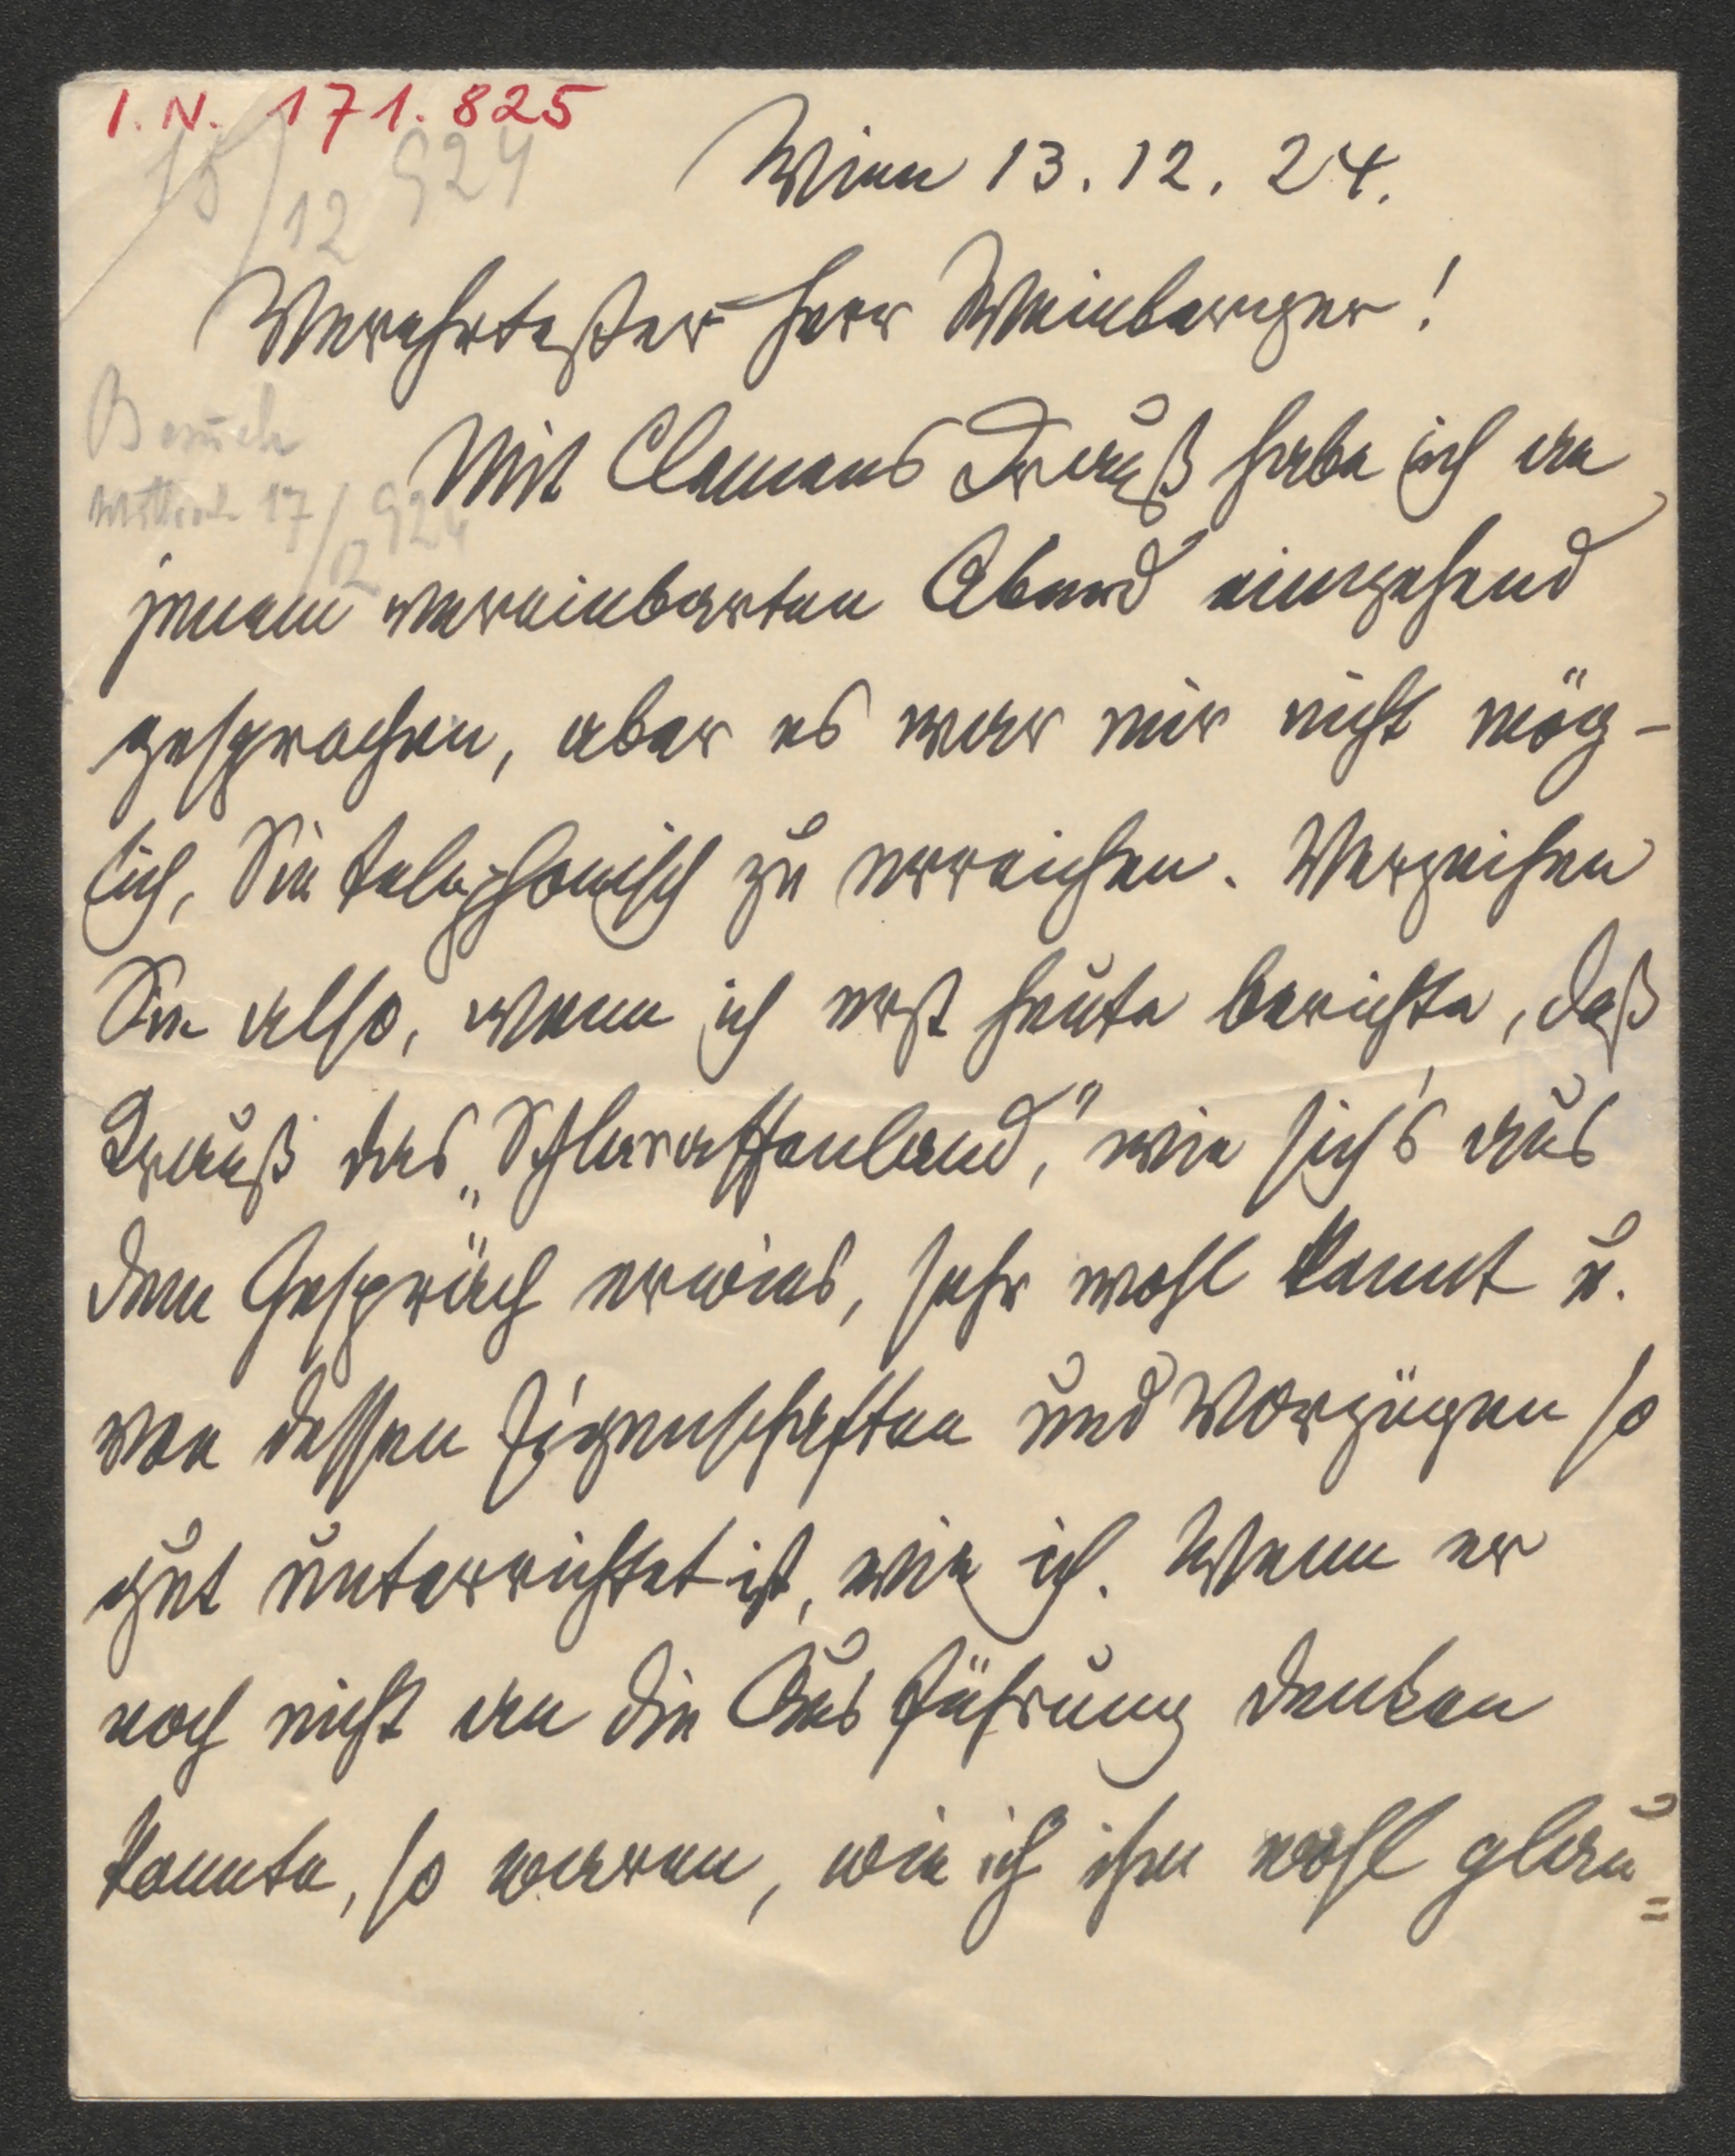 I. N. 171.825
15/12 924
Wien 13. 12. 24.
Verehrtester Herr Weinberger!
Besuch
Mittwoch 17/12 924
Mit Clemens Krauß habe ich an
jenem vereinbarten Abend eingehend
gesprochen, aber es war mir nicht mög-
lich, Sie telephonisch zu erreichen. Verzeihen
Sie also, wenn ich erst heute berichte, daß
Krauß das „Schlaraffenland," wie sich's aus
dem Gespräch erwies, sehr wohl kennt u.
von dessen Eigenschaften und Vorzügen so
gut unterrichtet ist, wie ich. Wenn er
noch nicht an die Ausführung denken
konnte, so waren, wie ich ihm wohl glau=